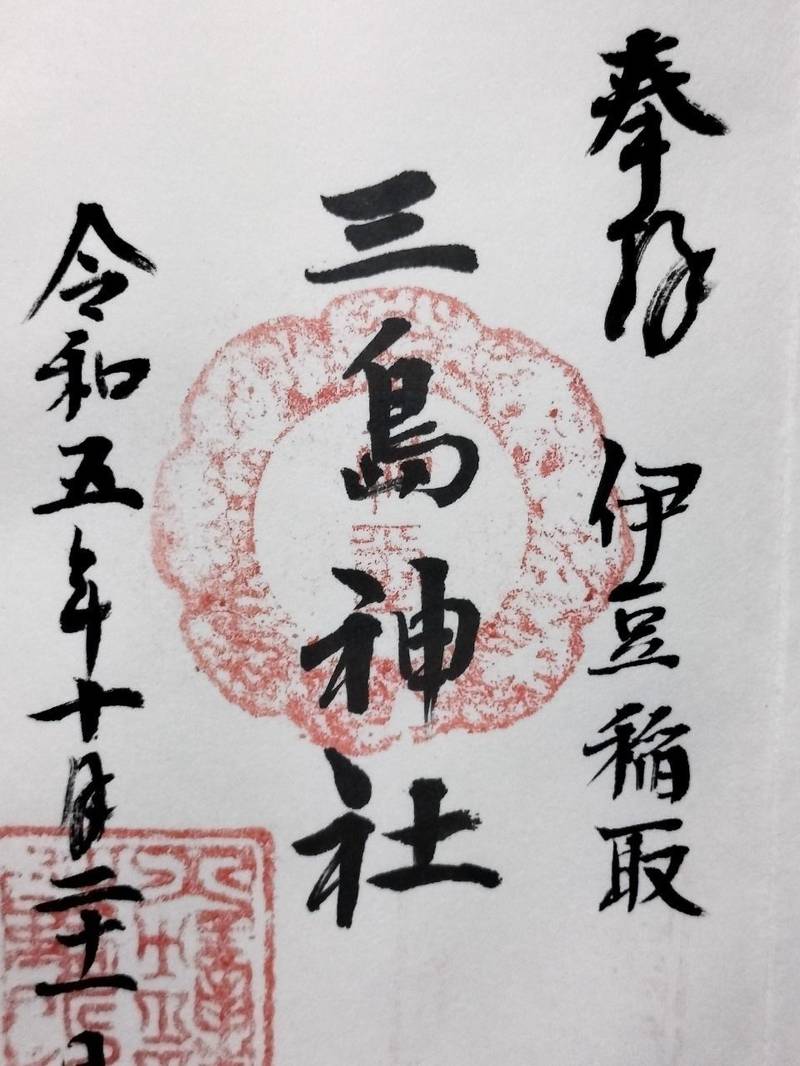 奉拝 伊豆稲取
三島神社
令和五年十月二十一日